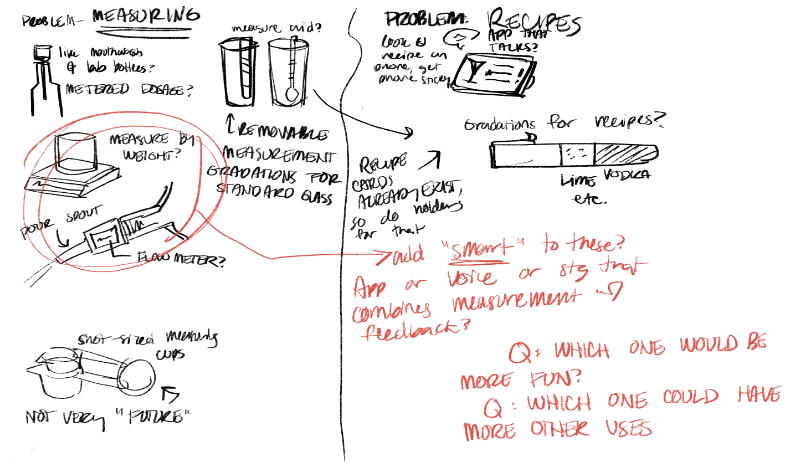 PROBLEM- MEASURING
like mouthwash
& lab bottles?
METERED DOSAGE?
measure aid?
↑ REMOVABLE
MEASUREMENT
GRADATIONS FOR
STANDARD GLASS
MEASURE BY
WEIGHT?
POUR SPOUT
FLOW METER?
shot-sized measuring
cups
NOT VERY "FUTURE"
PROBLEM: RECIPES
look @
recipe on
phone, get
phone sticky
APP THAT
TALKS?
Gradations for recipes?
LIME VODKA
etc.
RECIPE
CARDS
ALREADY EXIST,
so do holders
for that
add "smart" to these?
App or voice or stg that
combines measurement w/
feedback?
Q: WHICH ONE WOULD BE
MORE FUN?
Q: WHICH ONE COULD HAVE
MORE OTHER USES